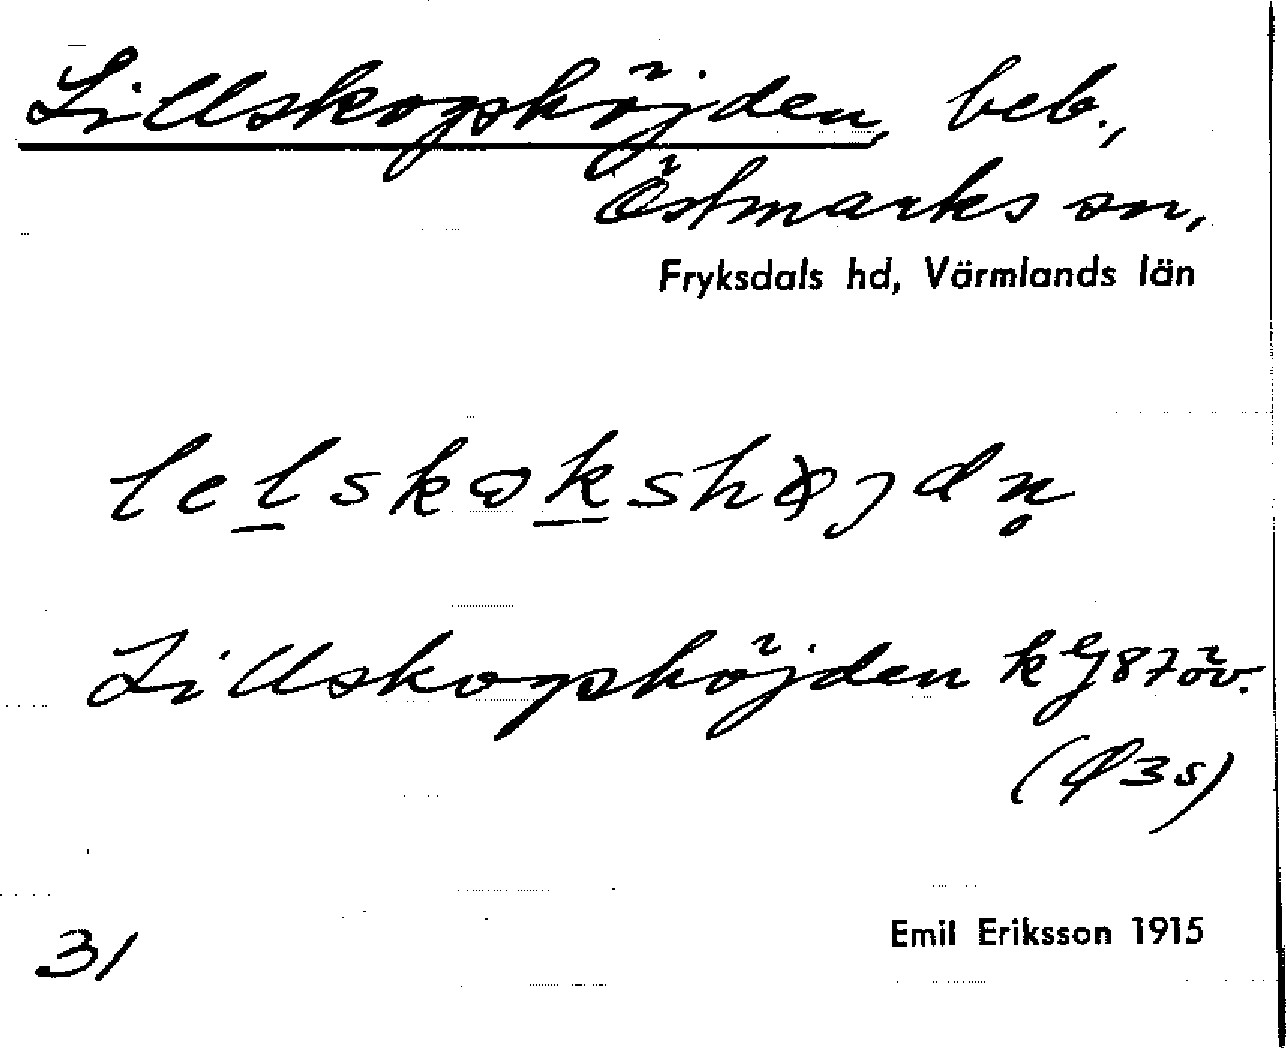 Lillskogshöjden, beb.,
Östmarks sn,
Fryksdals hd, Värmlands län
lelskɷkshøjdn̥
Lillskogshöjden kG 87 öv.
(Ø3s)
31
Emil Eriksson 1915